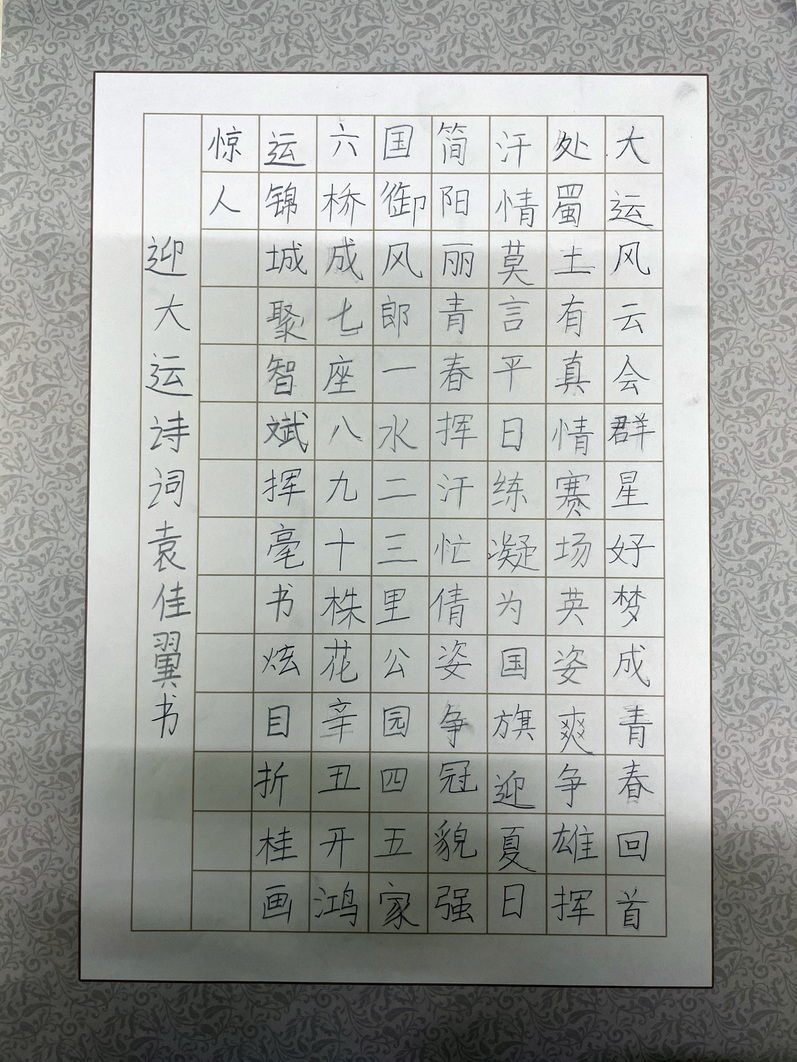 大运风云会群星好梦成青春回首
处蜀土有真情赛场英姿爽争雄挥
汗情莫言平日练凝为国旗迎夏日
简阳丽青春挥汗忙倩姿争冠貌强
国御风郎一水二三里公园四五家
六桥成七座八九十株花辛丑开鸿
运锦城聚智斌挥毫书炫目折桂画
惊人
迎大运诗词袁佳翼书